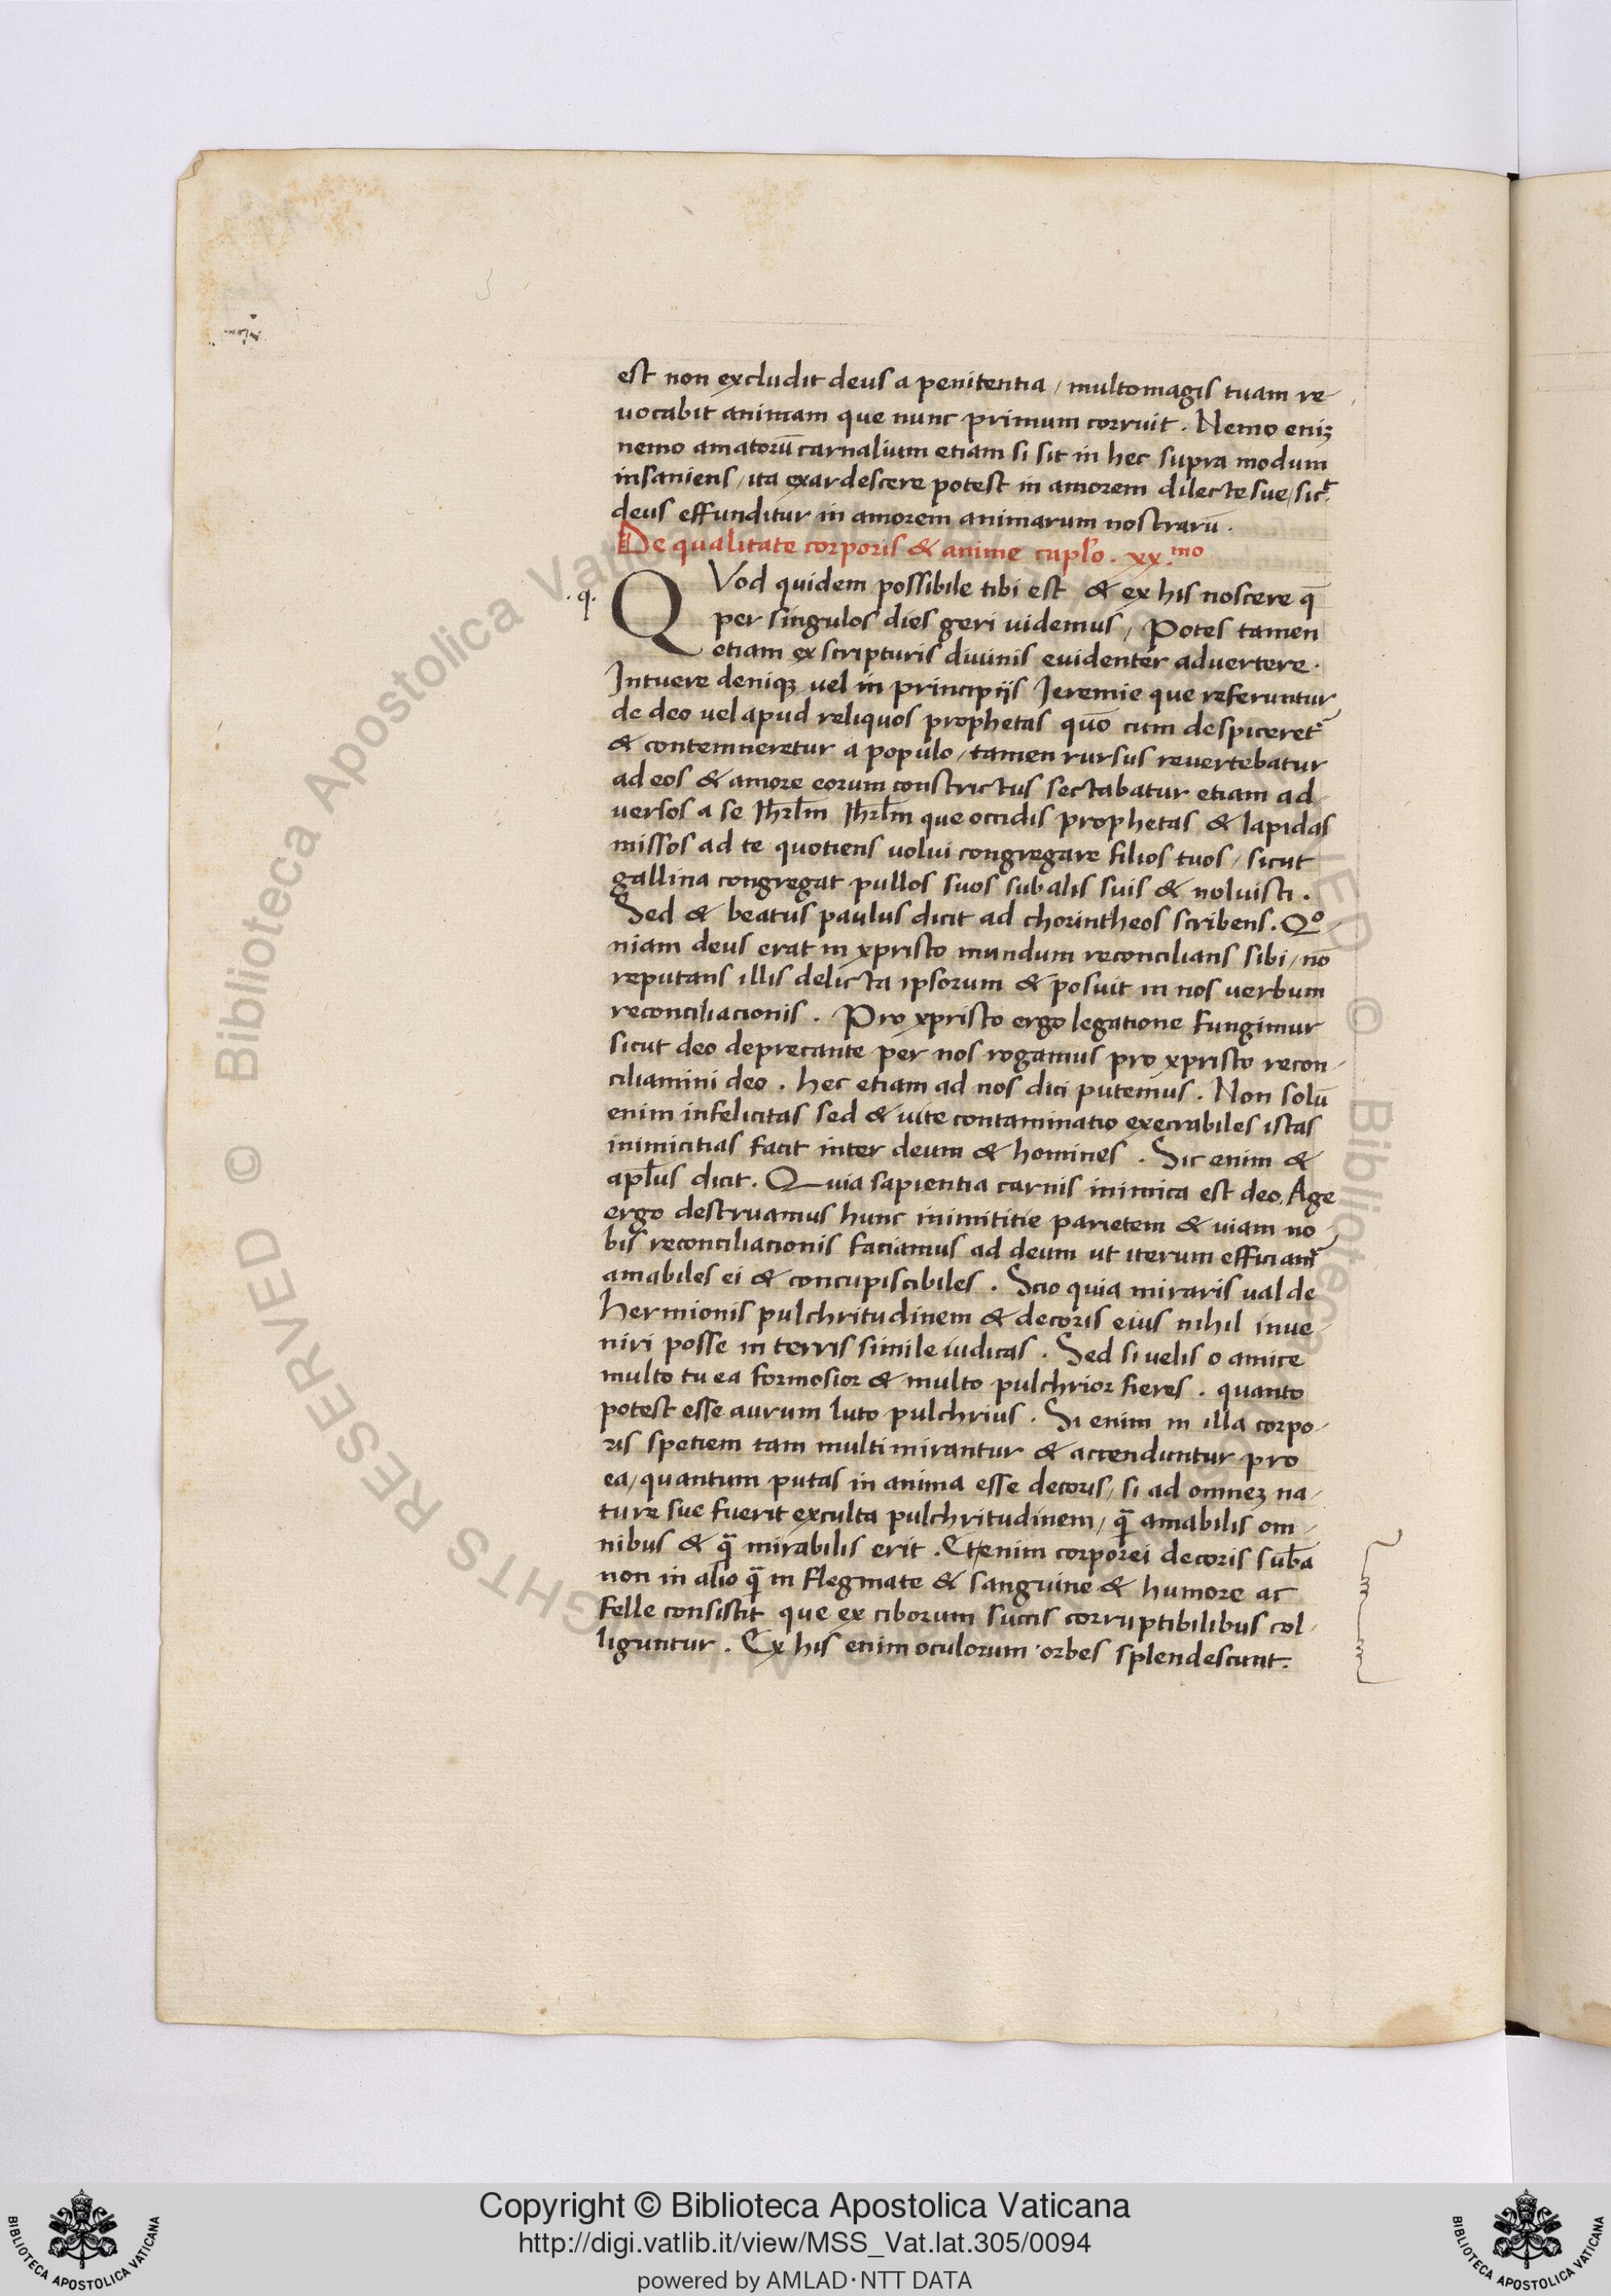 est non excludit deus a penitentia / multomagis tuam re-
uocabit animam que nunc primum corruit . Nemo eniꝫ
nemo amatorū carnalium etiam si sit in hec supra modum
insaniens / ita exardescere potest in amorem dilecte sue / sic᷒
deus effunditur in amorem animarum nostrarū .
De qualitate corporis & anime cap̄lo . xx.mo
. q .
QVod quidem possibile tibi est & ex his noscere q̄
per singulos dies geri uidemus / Potes tamen
etiam ex scripturis diuinis euidenter aduertere .
Intuere deniqꝫ uel in principijs Jeremie que referuntur
de deo uel apud reliquos prophetas quō cum despiceret᷒
& contemneretur a populo / tamen rursus reuertebatur
ad eos & amore eorum constrictus sectabatur etiam ad-
uersos a se Jhrl̄m Jhrl̄m que occidis prophetas & lapidas
missos ad te quotiens uolui congregare filios tuos / sicut
gallina congregat pullos suos sub alis suis & noluisti .
Sed & beatus paulus dicit ad chorintheos scribens . Qo-
niam deus erat in xpristo mundum reconcilians sibi / nō
reputans illis delicta ipsorum & posuit in nos uerbum
reconciliacionis . Pro xpristo ergo legatione fungimur
sicut deo deprecante per nos rogamus pro xpristo recon-
ciliamini deo . hec etiam ad nos dici putemus . Non solū
enim infelicitas sed & uite contaminatio execrabiles istas
inimicitias facit inter deum & homines . Sic enim &
apl̄us dicit . Quia sapientia carnis inimica est deo . Age
ergo destruamus hunc inimititie parietem & uiam no-
bis reconciliacionis faciamus ad deum ut iterum efficiam᷒
amabiles ei & concupiscibiles . Scio quia miraris ualde
hermionis pulchritudinem & decoris eius nihil inue-
niri posse in terris simile iudicas . Sed si uelis o amice
multo tu ea formosior & multo pulchrior fieres . quanto
potest esse aurum luto pulchrius . Si enim in illa corpo-
ris spetiem tam multi mirantur & accenduntur pro
ea / quantum putas in anima esse decoris / si ad omneꝫ na-
ture sue fuerit exculta pulchritudinem / qꝫ̄ amabilis om-
nibus & qꝫ̄ mirabilis erit . Etenim corporei decoris sub̄a
non in alio qꝫ̄ in flegmate & sanguine & humore ac
felle consistit que ex ciborum succis corruptibilibus col-
liguntur . Ex his enim oculorum orbes splendescunt .
© Biblioteca Apostolica Vaticana
ALL RIGHTS RESERVED
Copyright © Biblioteca Apostolica Vaticana
http://digi.vatlib.it/view/MSS_Vat.lat.305/0094
powered by AMLAD·NTT DATA
BIBLIOTECA APOSTOLICA VATICANA
BIBLIOTECA APOSTOLICA VATICANA